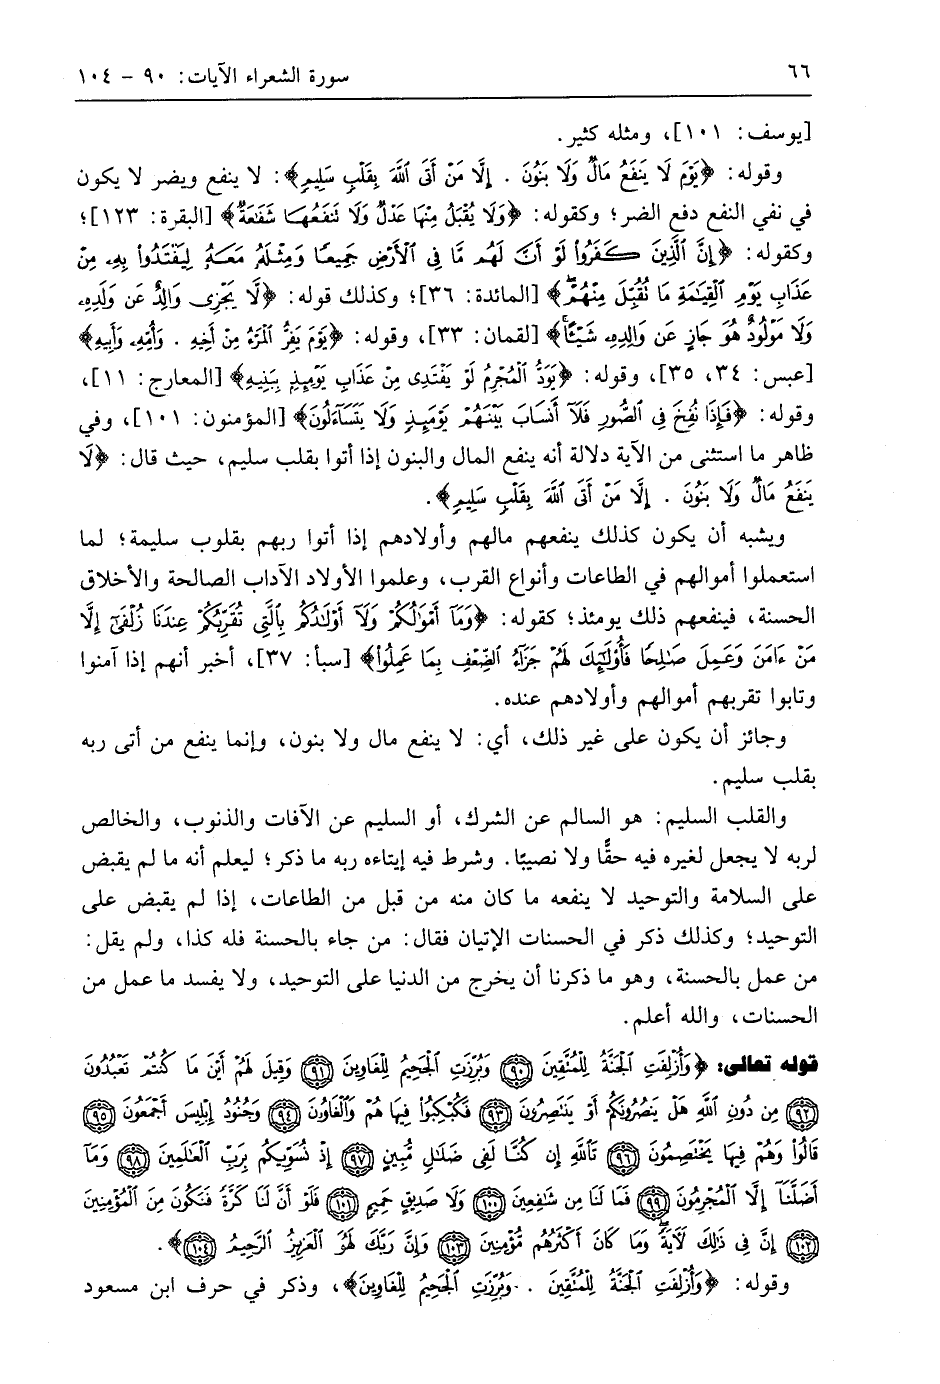 ٦٦ سورة الشعراء الآيات: ٩٠ - ١٠٤
[يوسف: ١٠١]، ومثله كثير.
وقوله: ﴿يَوْمَ لَا يَنفَعُ مَالٌ وَلَا بَنُونَ . إِلَّا مَنْ أَتَى ٱللَّهَ بِقَلْبٍ سَلِيمٍ﴾: لا ينفع ويضر لا يكون
في نفي النفع دفع الضر؛ وكقوله: ﴿وَلَا يُقْبَلُ مِنْهَا عَدْلٌ وَلَا تَنفَعُهَا شَفَٰعَةٌ﴾ [البقرة: ١٢٣]؛
وكقوله: ﴿إِنَّ ٱلَّذِينَ كَفَرُوا۟ لَوْ أَنَّ لَهُم مَّا فِى ٱلْأَرْضِ جَمِيعًا وَمِثْلَهُۥ مَعَهُۥ لِيَفْتَدُوا۟ بِهِۦ مِنْ
عَذَابِ يَوْمِ ٱلْقِيَٰمَةِ مَا تُقُبِّلَ مِنْهُمْ﴾ [المائدة: ٣٦]؛ وكذلك قوله: ﴿لَّا يَجْزِى وَالِدٌ عَن وَلَدِهِۦ
وَلَا مَوْلُودٌ هُوَ جَازٍ عَن وَالِدِهِۦ شَيْـًٔا﴾ [لقمان: ٣٣]، وقوله: ﴿يَوْمَ يَفِرُّ ٱلْمَرْءُ مِنْ أَخِيهِ . وَأُمِّهِۦ وَأَبِيهِ﴾
[عبس: ٣٤، ٣٥]، وقوله: ﴿يَوَدُّ ٱلْمُجْرِمُ لَوْ يَفْتَدِى مِنْ عَذَابِ يَوْمِئِذٍۭ بِبَنِيهِ﴾ [المعارج: ١١]،
وقوله: ﴿فَإِذَا نُفِخَ فِى ٱلصُّورِ فَلَآ أَنسَابَ بَيْنَهُمْ يَوْمَئِذٍ وَلَا يَتَسَآءَلُونَ﴾ [المؤمنون: ١٠١]، وفي
ظاهر ما استثنى من الآية دلالة أنه ينفع المال والبنون إذا أتوا بقلب سليم، حيث قال: ﴿لَا
يَنفَعُ مَالٌ وَلَا بَنُونَ . إِلَّا مَنْ أَتَى ٱللَّهَ بِقَلْبٍ سَلِيمٍ﴾.
ويشبه أن يكون كذلك ينفعهم مالهم وأولادهم إذا أتوا ربهم بقلوب سليمة؛ لما
استعملوا أموالهم في الطاعات وأنواع القرب، وعلموا الأولاد الآداب الصالحة والأخلاق
الحسنة، فينفعهم ذلك يومئذ؛ كقوله: ﴿وَمَآ أَمْوَٰلُكُمْ وَلَآ أَوْلَٰدُكُم بِٱلَّتِى تُقَرِّبُكُمْ عِندَنَا زُلْفَىٰٓ إِلَّا
مَنْ ءَامَنَ وَعَمِلَ صَٰلِحًا فَأُو۟لَٰٓئِكَ لَهُمْ جَزَآءُ ٱلضِّعْفِ بِمَا عَمِلُوا۟﴾ [سبأ: ٣٧]، أخبر أنهم إذا آمنوا
وتابوا تقربهم أموالهم وأولادهم عنده.
وجائز أن يكون على غير ذلك، أي: لا ينفع مال ولا بنون، وإنما ينفع من أتى ربه
بقلب سليم.
والقلب السليم: هو السالم عن الشرك، أو السليم عن الآفات والذنوب، والخالص
لربه لا يجعل لغيره فيه حقًّا ولا نصيبًا. وشرط فيه إيتاءه ربه ما ذكر؛ ليعلم أنه ما لم يقبض
على السلامة والتوحيد لا ينفعه ما كان منه من قبل من الطاعات، إذا لم يقبض على
التوحيد؛ وكذلك ذكر في الحسنات الإتيان فقال: من جاء بالحسنة فله كذا، ولم يقل:
من عمل بالحسنة، وهو ما ذكرنا أن يخرج من الدنيا على التوحيد، ولا يفسد ما عمل من
الحسنات، والله أعلم.
قوله تعالى: ﴿وَأُزْلِفَتِ ٱلْجَنَّةُ لِلْمُتَّقِينَ ٩٠ وَبُرِّزَتِ ٱلْجَحِيمُ لِلْغَاوِينَ ٩١ وَقِيلَ لَهُمْ أَيْنَ مَا كُنتُمْ تَعْبُدُونَ
٩٢ مِن دُونِ ٱللَّهِ هَلْ يَنصُرُونَكُمْ أَوْ يَنتَصِرُونَ ٩٣ فَكُبْكِبُوا۟ فِيهَا هُمْ وَٱلْغَاوُۥنَ ٩٤ وَجُنُودُ إِبْلِيسَ أَجْمَعُونَ ٩٥
قَالُوا۟ وَهُمْ فِيهَا يَخْتَصِمُونَ ٩٦ تَٱللَّهِ إِن كُنَّا لَفِى ضَلَٰلٍ مُّبِينٍ ٩٧ إِذْ نُسَوِّيكُم بِرَبِّ ٱلْعَٰلَمِينَ ٩٨ وَمَآ
أَضَلَّنَآ إِلَّا ٱلْمُجْرِمُونَ ٩٩ فَمَا لَنَا مِن شَٰفِعِينَ ١٠٠ وَلَا صَدِيقٍ حَمِيمٍ ١٠١ فَلَوْ أَنَّ لَنَا كَرَّةً فَنَكُونَ مِنَ ٱلْمُؤْمِنِينَ
١٠٢ إِنَّ فِى ذَٰلِكَ لَآيَةً وَمَا كَانَ أَكْثَرُهُم مُّؤْمِنِينَ ١٠٣ وَإِنَّ رَبَّكَ لَهُوَ ٱلْعَزِيزُ ٱلرَّحِيمُ ١٠٤﴾.
وقوله: ﴿وَأُزْلِفَتِ ٱلْجَنَّةُ لِلْمُتَّقِينَ . وَبُرِّزَتِ ٱلْجَحِيمُ لِلْغَاوِينَ﴾، وذكر في حرف ابن مسعود